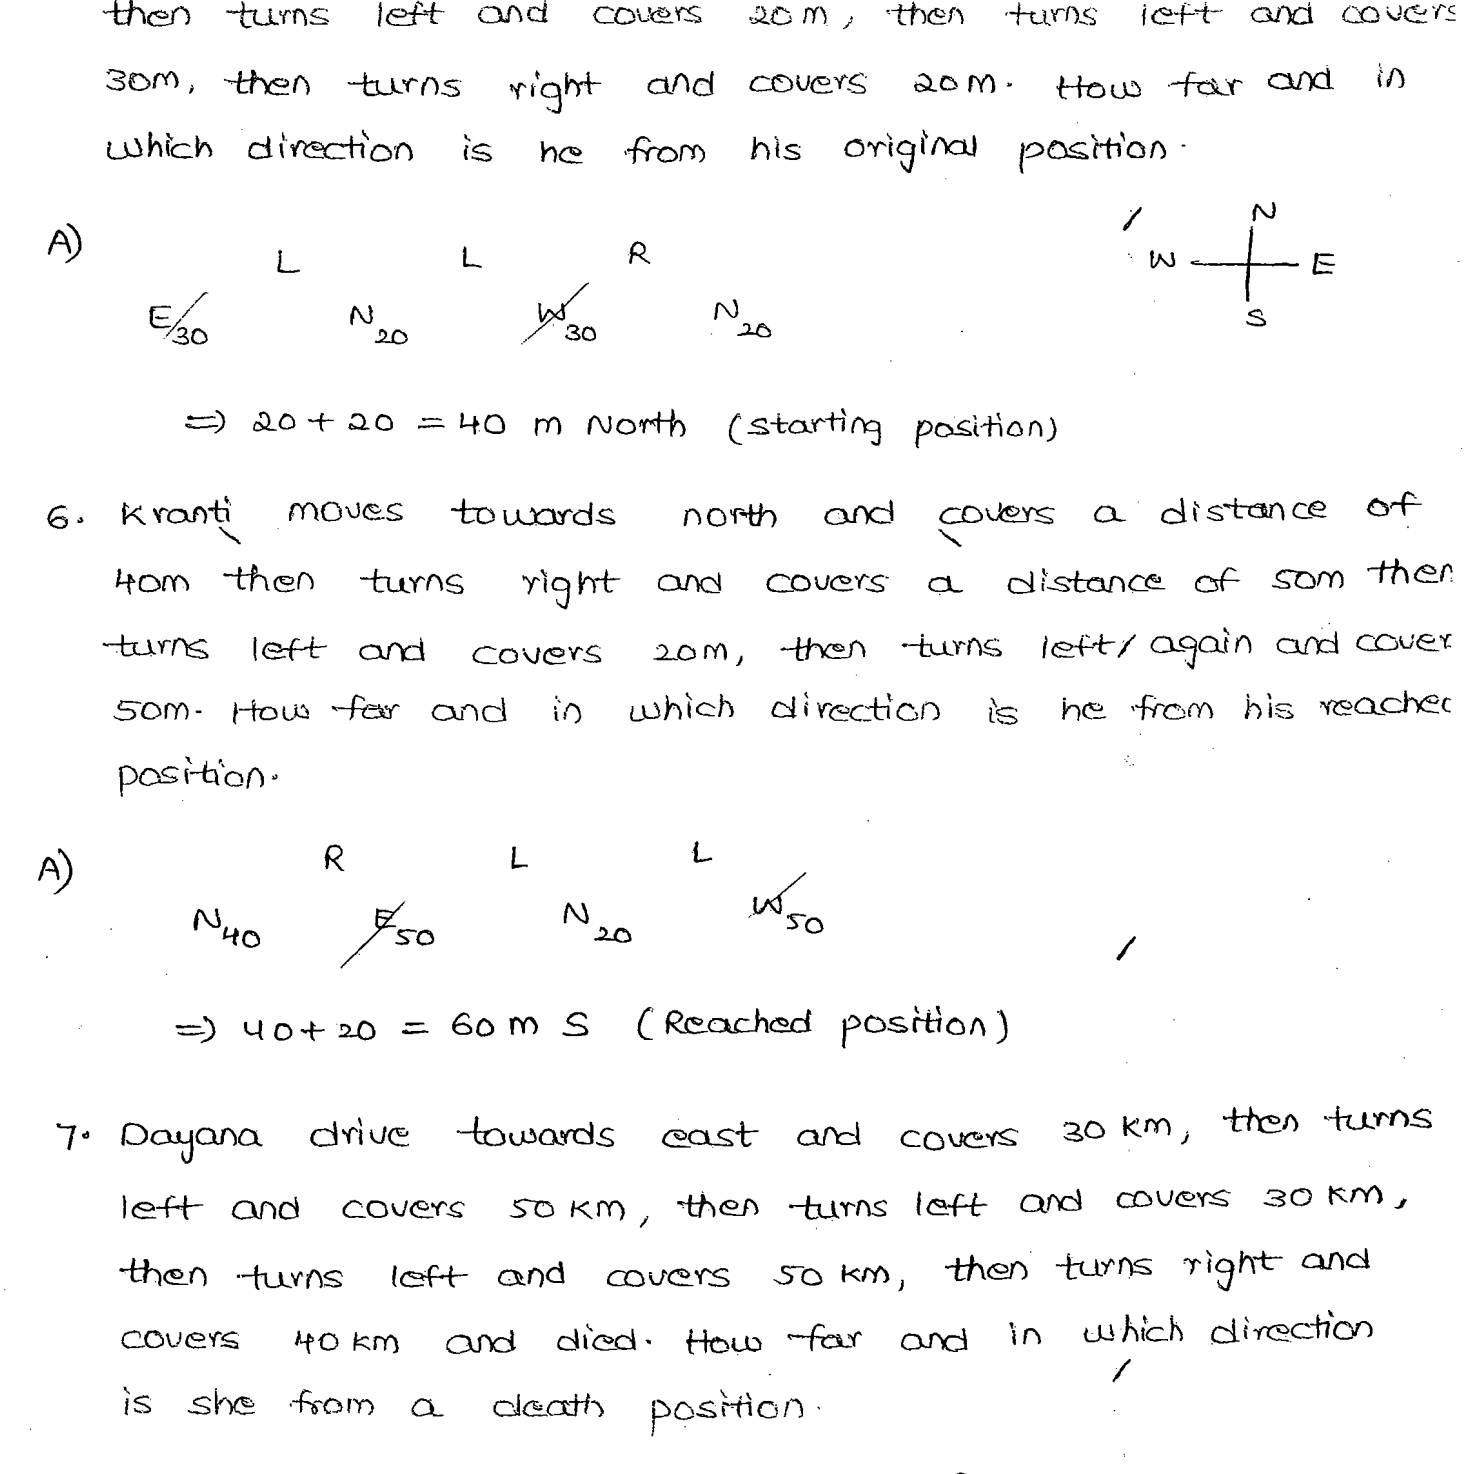 then turns left and covers 20m, then turns left and covers
30m, then turns right and covers 20m. How far and in
which direction is he from his original position.
A)
L L R
N
W E
S
E/30 N20 W30 N20
=) 20 + 20 = 40 m North (starting position)
6. Kranti moves towards north and covers a distance of
40m then turns right and covers a distance of 50m then
turns left and covers 20m, then turns left/ again and cover
50m. How far and in which direction is he from his reached
position.
A)
R L L
N40 E50 N20 W50
=) 40+20 = 60 m S (Reached position)
7. Dayana drive towards east and covers 30 km, then turns
left and covers 50 km, then turns left and covers 30 km,
then turns left and covers 50 km, then turns right and
covers 40 km and died. How far and in which direction
is she from a death position.